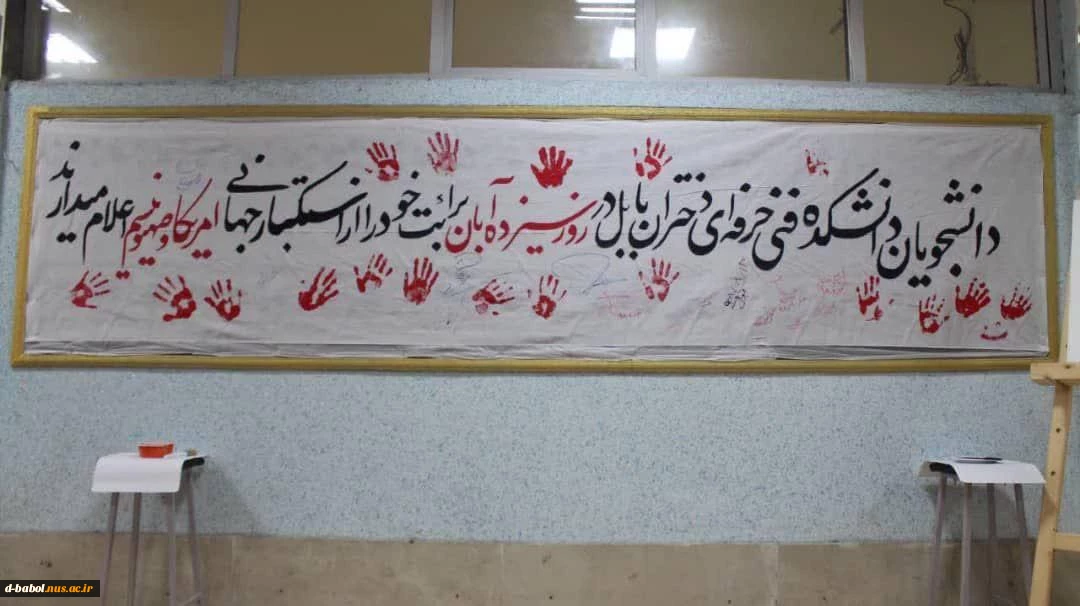 دانشجویان دانشکده فنی حرفه ای دختران بابل در روز سیزده آبان برائت خود را از استکبار جهانی امریکا و صهیونیسم اعلام میدارند
d-babol.nus.ac.ir